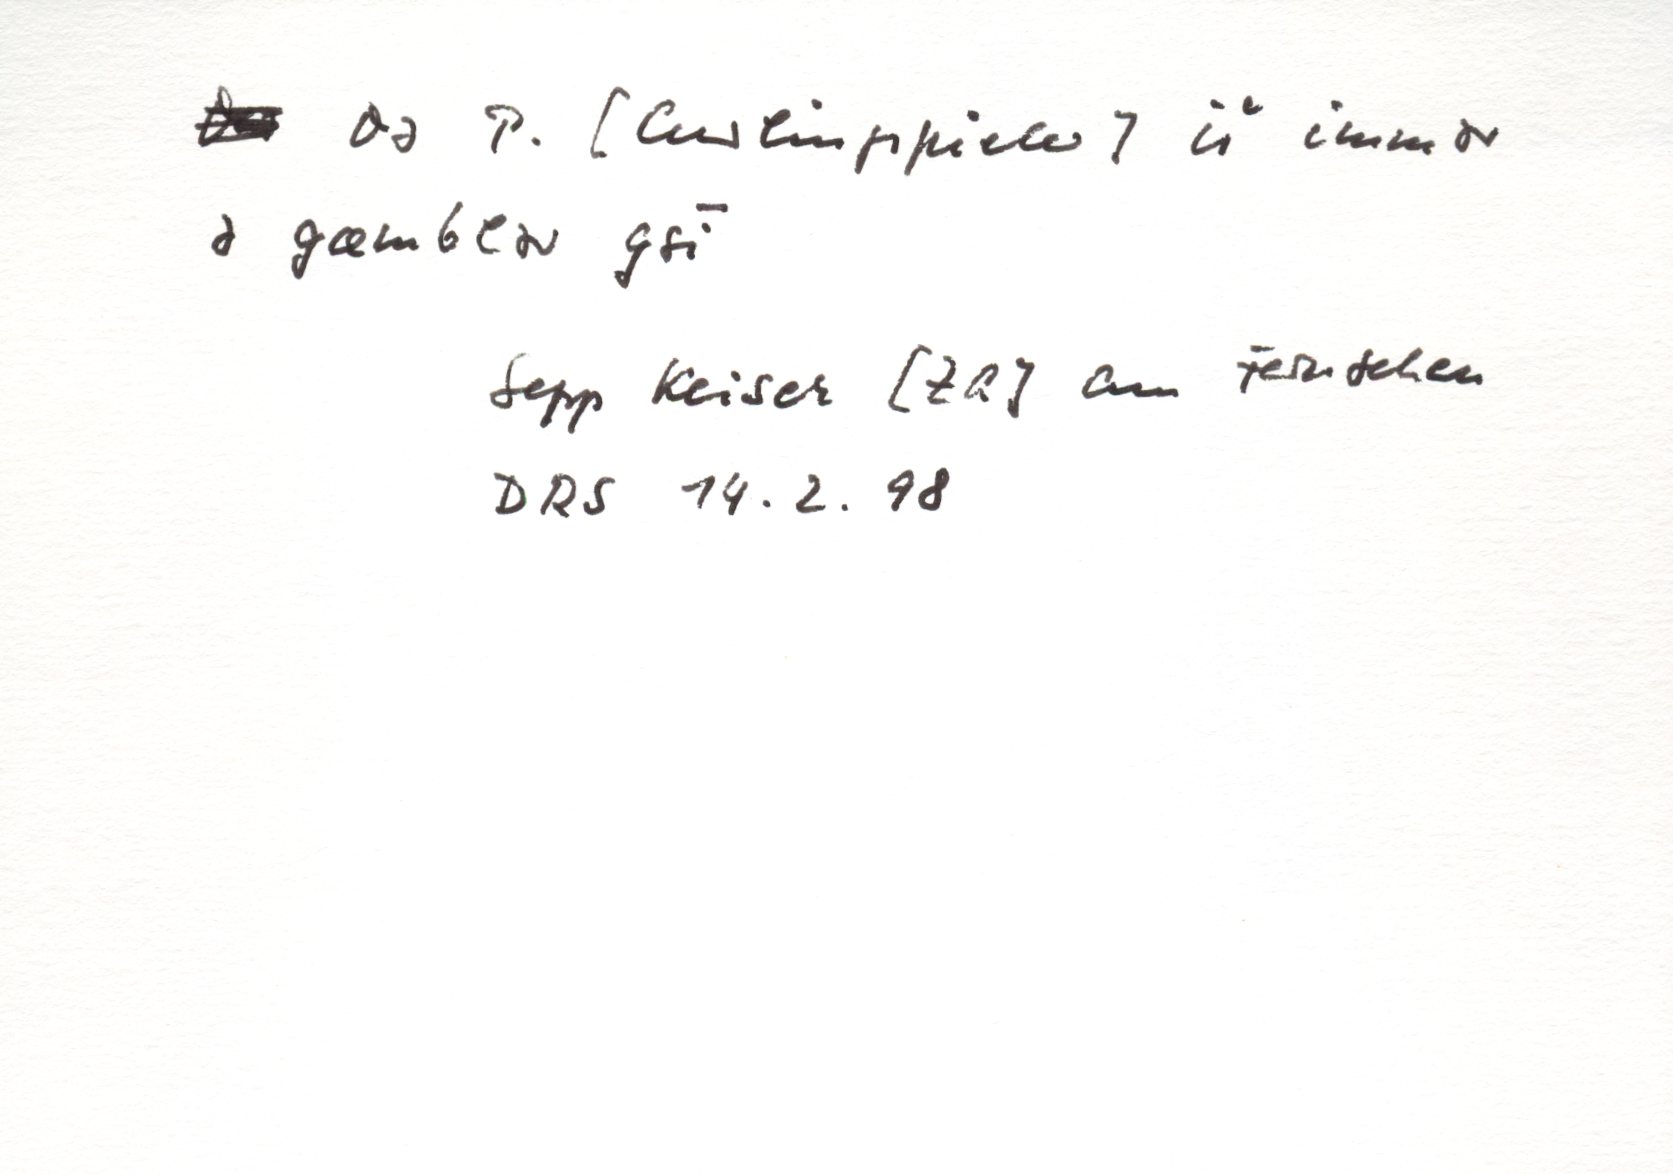 də P. [Curlingspieler] iš immər
ə gæmblər gsī
Sepp Keiser [ZR] am Fernsehen
DRS 14.2.98